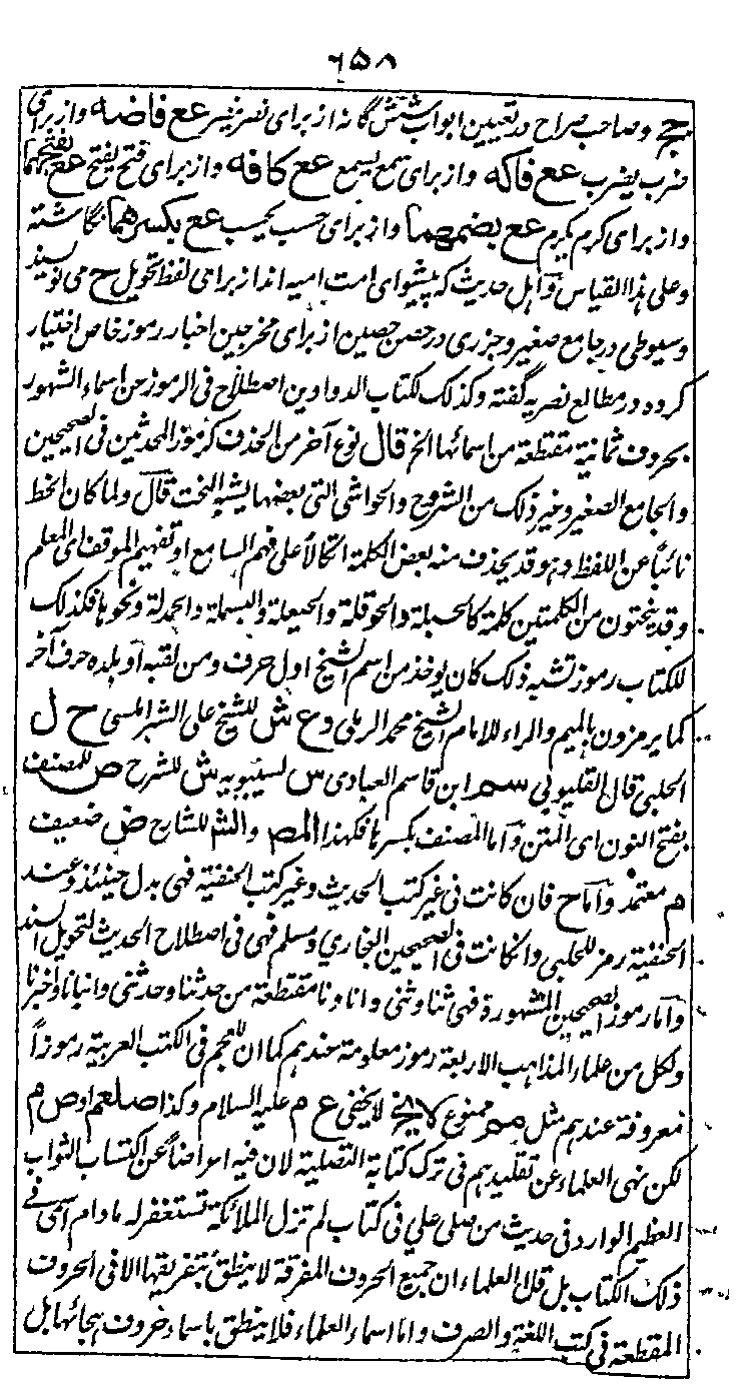 ۶۵۸
جج وصاحب صراح در تعیین ابواب شش گانه از برای نصر ینصر عع فاضه واز برای
ضرب یضرب عع فاکه واز برای سمع یسمع عع کافه واز برای فتح یفتح عع بفتحهما
واز برای کرم یکرم عع بضمهما واز برای حسب یحسب عع بکسرهما نگاشته
وعلی هذا القیاس وآهل حدیث که پیشوای امت امیه اند از برای لفظ تحویل ح می نویسند
وسیوطی در جامع صغیر وجزری در حصن حصین از برای مخرجین اخبار رموز خاص اختیار
کرده در مطالع نصریه گفته وکذلک لکتاب الدواوین اصطلاح فی الرموز عن اسماء الشهور
بحروف ثمانیة مقتطعة من اسمائها الخ قال نوع آخر من الحذف کرموز المحدثین فی الصحیحین
والجامع الصغیر وغیر ذلک من الشروح والحواشی التی بعضها یشبه النحت قال ولما کان الخط
نائباً عن اللفظ وهو قد یحذف منه بعض الکلمة اتکالاً علی فهم السامع او تفهیم الموقف ای المعلم
وقد ینحتون من الکلمتین کلمة کالحسبلة والحوقلة والحیعلة والبسملة والحمدلة ونحوها فکذلک
للکتاب رموز تشبه ذلک کان یوخذ من اسم الشیخ اول حرف ومن لقبه او بلده حرف آخر
کما یرمزون بالمیم والراء للامام الشیخ محمد الرملی وع ش للشیخ علی الشبراملسی ح ل
الحلبی قال القلیوبی سم ابن قاسم العبادی س لسیبویه ش للشرح ص للمصنف
بفتح النون ای المتن وآما المصنف بکسرها فکهذا المص والشر للشارح ض ضعیف
م معتمد وآماح فان کانت فی غیر کتب الحدیث وغیر کتب الحنفیة فهی بدل حینئذ وعند
الحنفیة رمز للحلبی وان کانت فی الصحیحین البخاری ومسلم فهی فی اصطلاح الحدیث لتحویل السند
وآما رموز الصحیحین المشهورة فهی ثنا وثنی وانا ونا مقتطعة من حدثنا وحدثنی وانبانا واخبرنا
ولکل من علماء المذاهب الاربعة رموز معلومة عندهم کما ان للعجم فی الکتب العربیة رموزاً
معروفة عندهم مثل مم ممنوع لایخ لا یخفی ع م علیه السلام وکذا صلعم او ص م
لکن نهی العلماء عن تقلیدهم فی ترک کتابة التصلیة لان فیه اعراضاً عن اکتساب الثواب
العظیم الوارد فی حدیث من صلی علی فی کتاب لم تزل الملائکة تستغفر له مادام اسمی فی
ذلک الکتاب بل قال العلماء ان جمیع الحروف المفرقة لا ینطق بتفریقها الا فی الحروف
المقطعة فی کتب اللغة والصرف واما اسماء العلماء فلا ینطق باسماء حروف هجائها بل